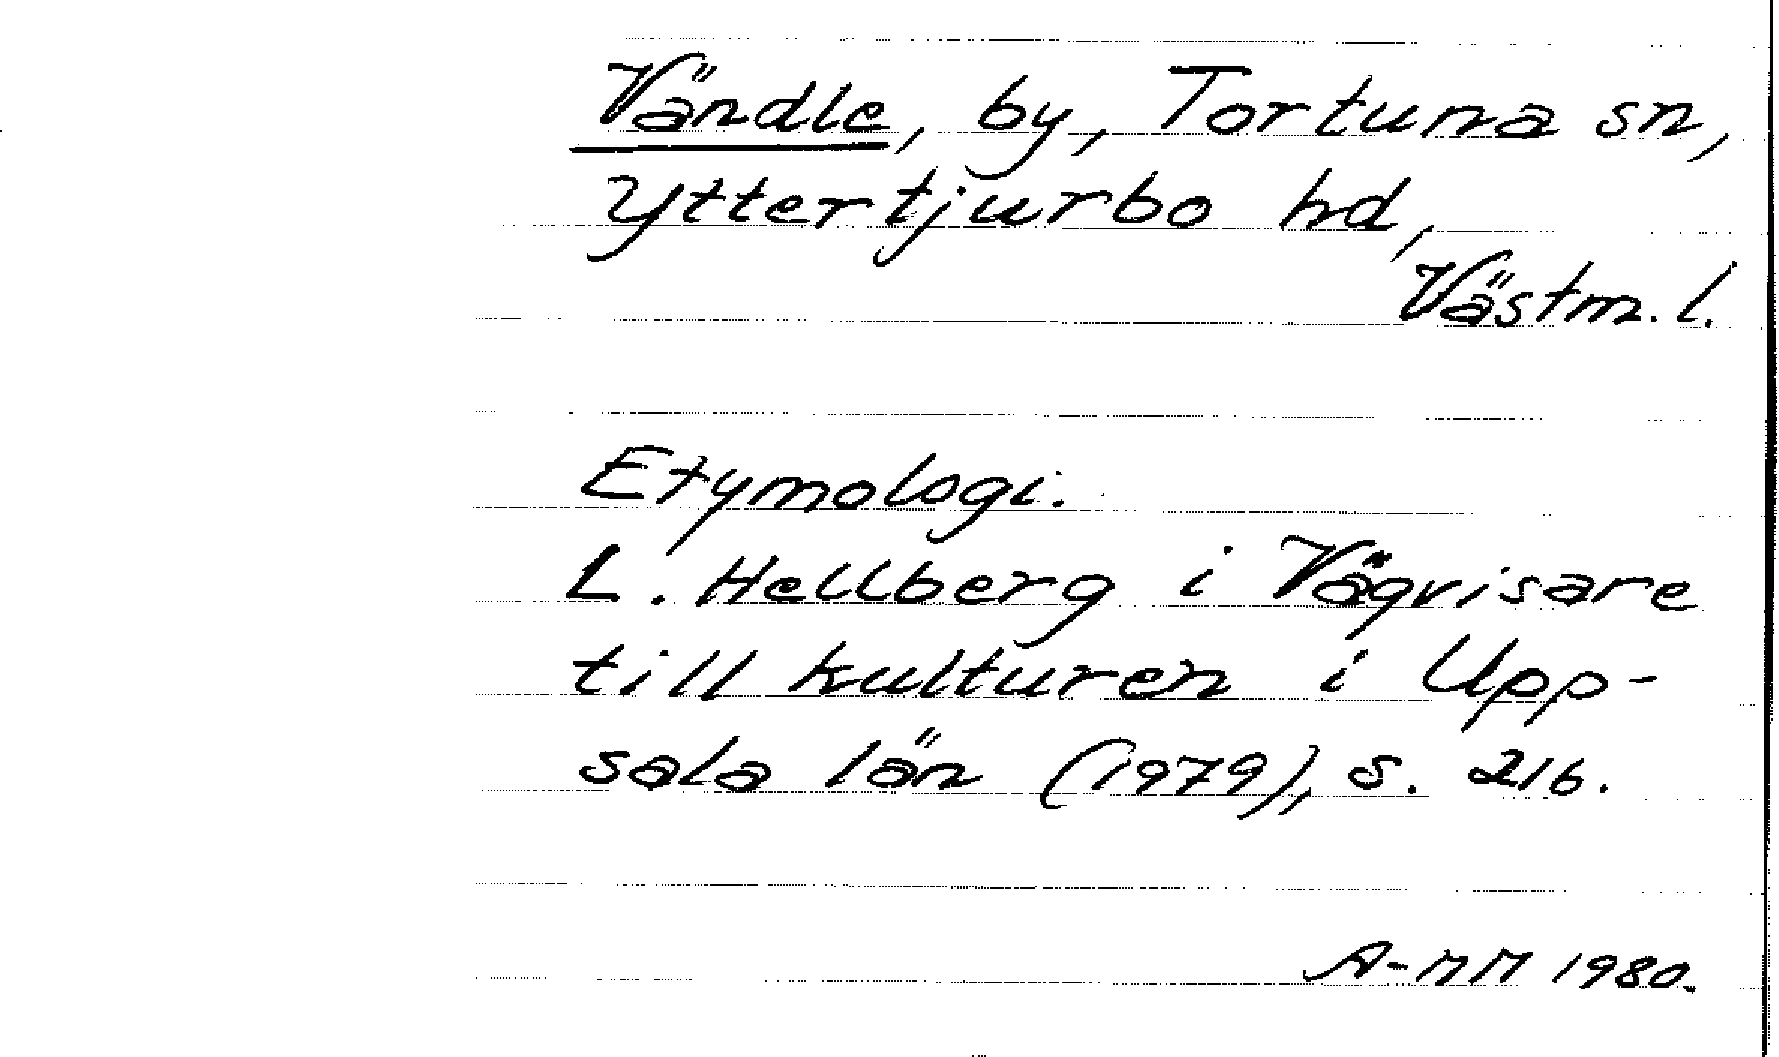 Vändle, by, Tortuna sn,
Yttertjurbo hd,
Västm. l.
Etymologi.
L. Hellberg i Vägvisare
till kulturen i Upp-
sala län (1979), s. 216.
A-MM 1980.